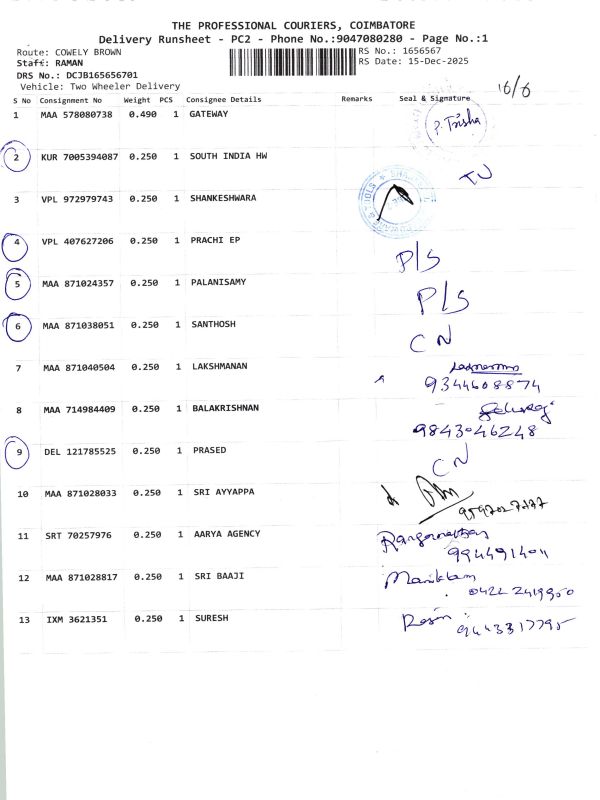 THE PROFESSIONAL COURIERS, COIMBATORE
Delivery Runsheet - PC2 - Phone No.:9047080280 - Page No.:1
Route: COWELY BROWN RS No.: 1656567
Staff: RAMAN RS Date: 15-Dec-2025
DRS No.: DCJB165656701
Vehicle: Two Wheeler Delivery
16/6
S No Consignment No Weight PCS Consignee Details Remarks Seal & Signature
1 MAA 578080738 0.490 1 GATEWAY P. Trisha
2 KUR 7005394087 0.250 1 SOUTH INDIA HW
3 VPL 972979743 0.250 1 SHANKESHWARA
4 VPL 407627206 0.250 1 PRACHI EP P/S
5 MAA 871024357 0.250 1 PALANISAMY P/S
6 MAA 871038051 0.250 1 SANTHOSH CN
7 MAA 871040504 0.250 1 LAKSHMANAN
9344608874
8 MAA 714984409 0.250 1 BALAKRISHNAN
9843046248
9 DEL 121785525 0.250 1 PRASED CN
10 MAA 871028033 0.250 1 SRI AYYAPPA
11 SRT 70257976 0.250 1 AARYA AGENCY
12 MAA 871028817 0.250 1 SRI BAAJI
0422 2419950
13 IXM 3621351 0.250 1 SURESH
9443317795